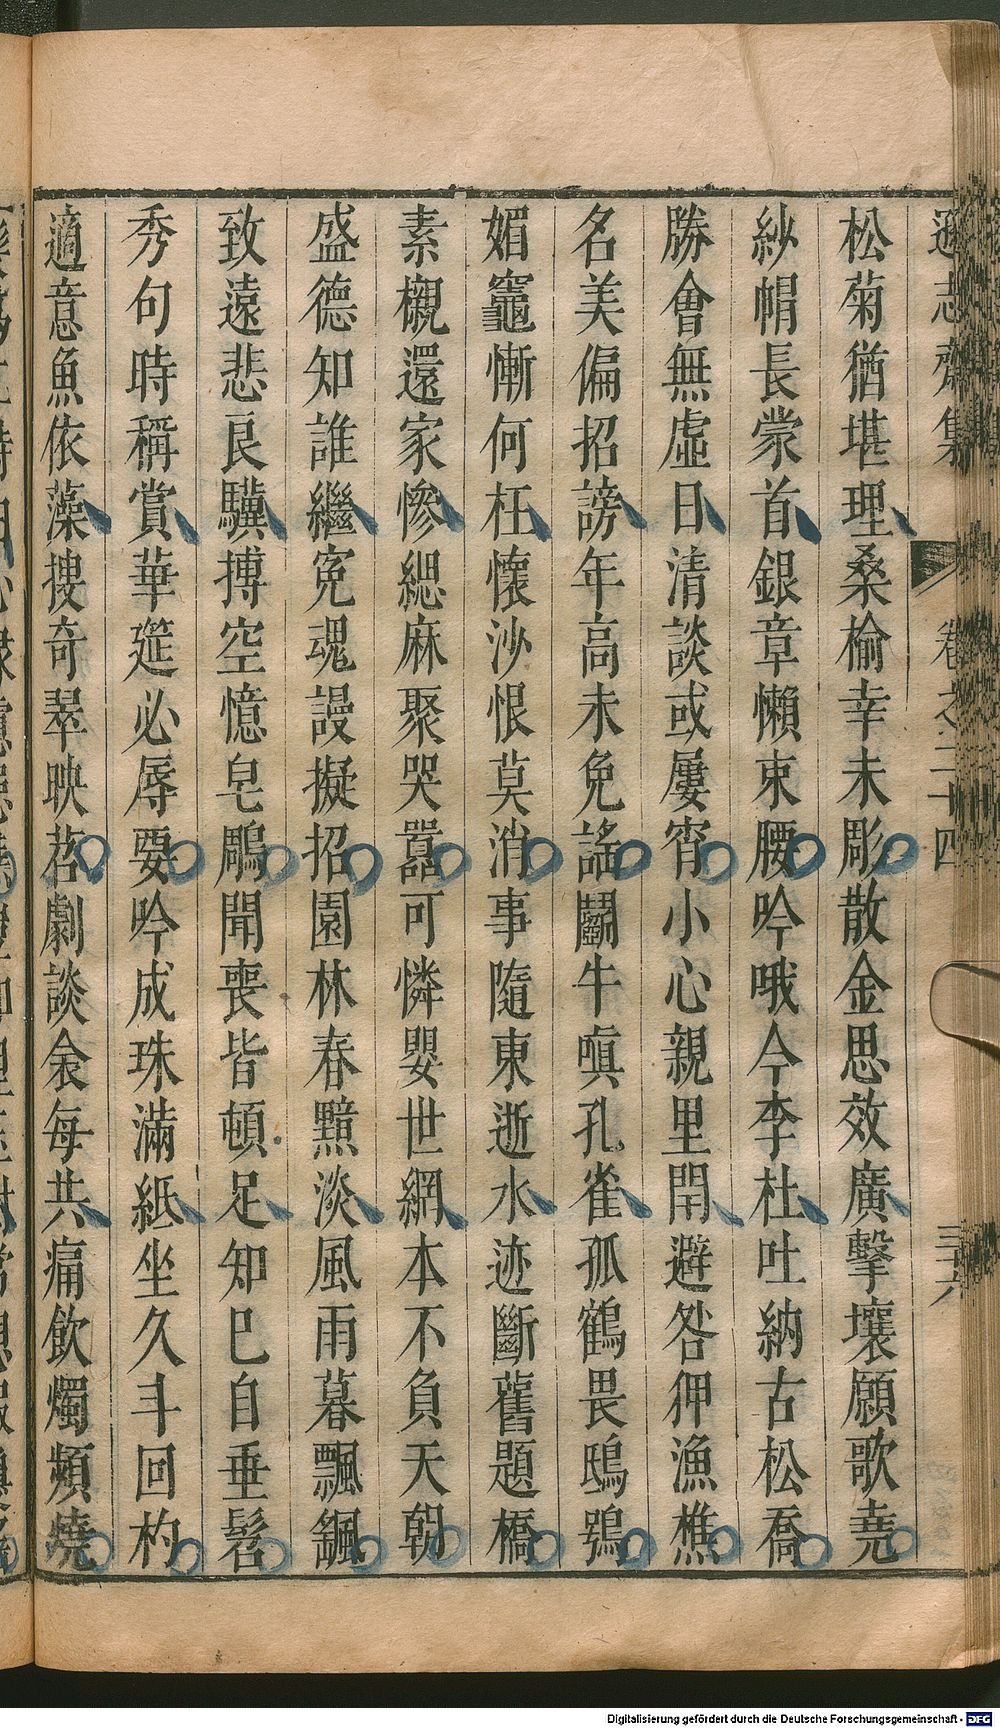 遜志齋集 卷之二十四 三十六
松菊猶堪理桑榆幸未彫散金思效廣擊壤願歌堯
紗帽長蒙首銀章懶束腰吟哦今李杜吐納古松喬
勝會無虛日清談或屢宵小心親里閈避咎狎漁樵
名美偏招謗年高未免謠鬭牛嗔孔雀孤鶴畏鴟鴞
媚竈慚何枉懷沙恨莫消事隨東逝水迹斷舊題橋
素櫬還家慘緦麻聚哭嚣可憐嬰世網本不負天朝
盛德知誰繼寃魂謾擬招園林春黯淡風雨暮飄颻
致遠悲良驥摶空憶皂鵰聞喪皆頓足知已自垂髫
秀句時稱賞華筵必辱要吟成珠滿紙坐久斗回杓
適意魚依藻搜奇翠映苕劇談余每共痛飲燭頻燒
Digitalisierung gefördert durch die Deutsche Forschungsgemeinschaft - DFG